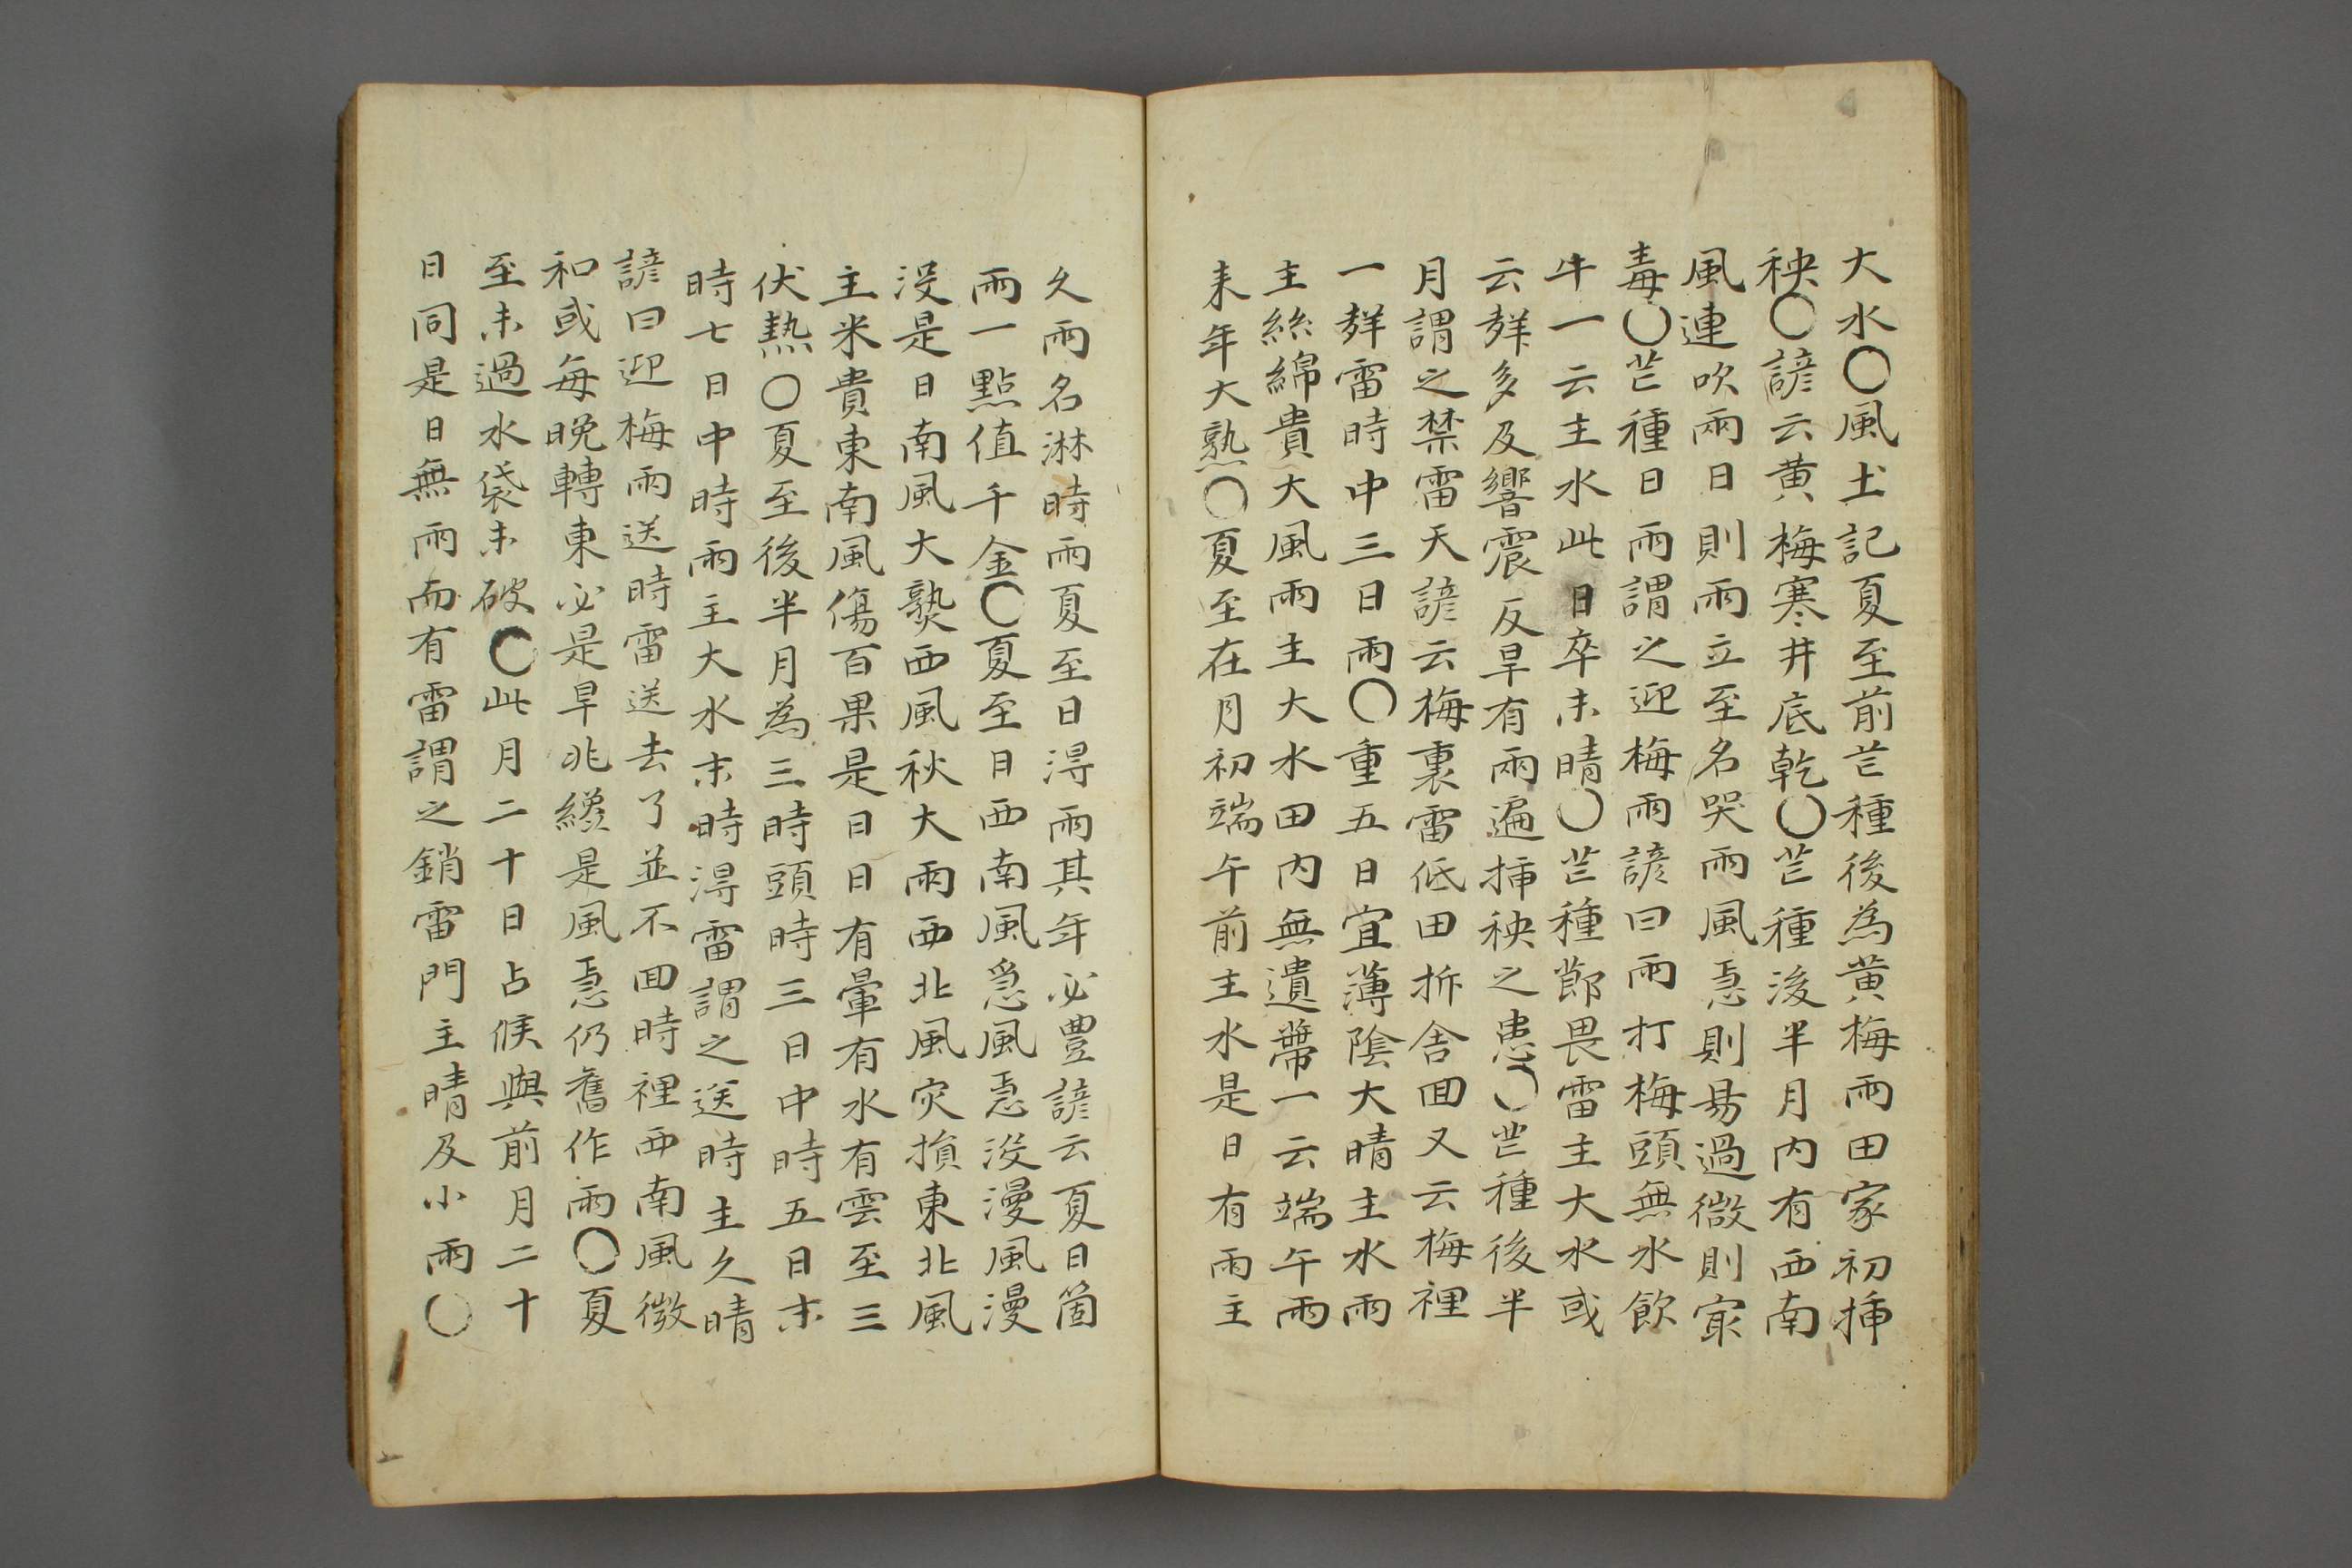 大水○風土記夏至前芒種後為黃梅雨田家初揷
秧○諺云黃梅寒井底乾○芒種後半月内有西南
風連吹兩日則雨立至名哭雨風㥯則易過微則㝡
毒○芒種日雨謂之迎梅雨諺曰雨打梅頭無水飮
牛一云主水此日卒未晴○芒種節畏雷主大水或
云聲多及響震反旱有雨遍揷秧之患○芒種後半
月謂之禁雷天諺云梅裏雷低田拆舍囬又云梅裡
一聲雷時中三日雨○重五日宜薄陰大晴主水雨
主絲綿貴大風雨主大水田内無遺帶一云端午雨
来年大熟○夏至在月初端午前主水是日有雨主
久雨名淋時雨夏至日淂雨其年必豊諺云夏日箇
雨一點值千金○夏至日西南風急風急没漫風漫
没是日南風大𤍠西風秋大雨西北風灾損東北風
主米貴東南風傷百果是日日有暈有水有雲至三
伏熱○夏至後半月為三時頭時三日中時五日末
時七日中時雨主大水末時淂雷謂之送時主久晴
諺曰迎梅雨送時雷送去了並不囬時裡西南風微
和或每晚轉東必是旱兆纔是風急仍舊作雨○夏
至未過水袋未破○此月二十日占候與前月二十
日同是日無雨而有雷謂之銷雷門主晴及小雨○